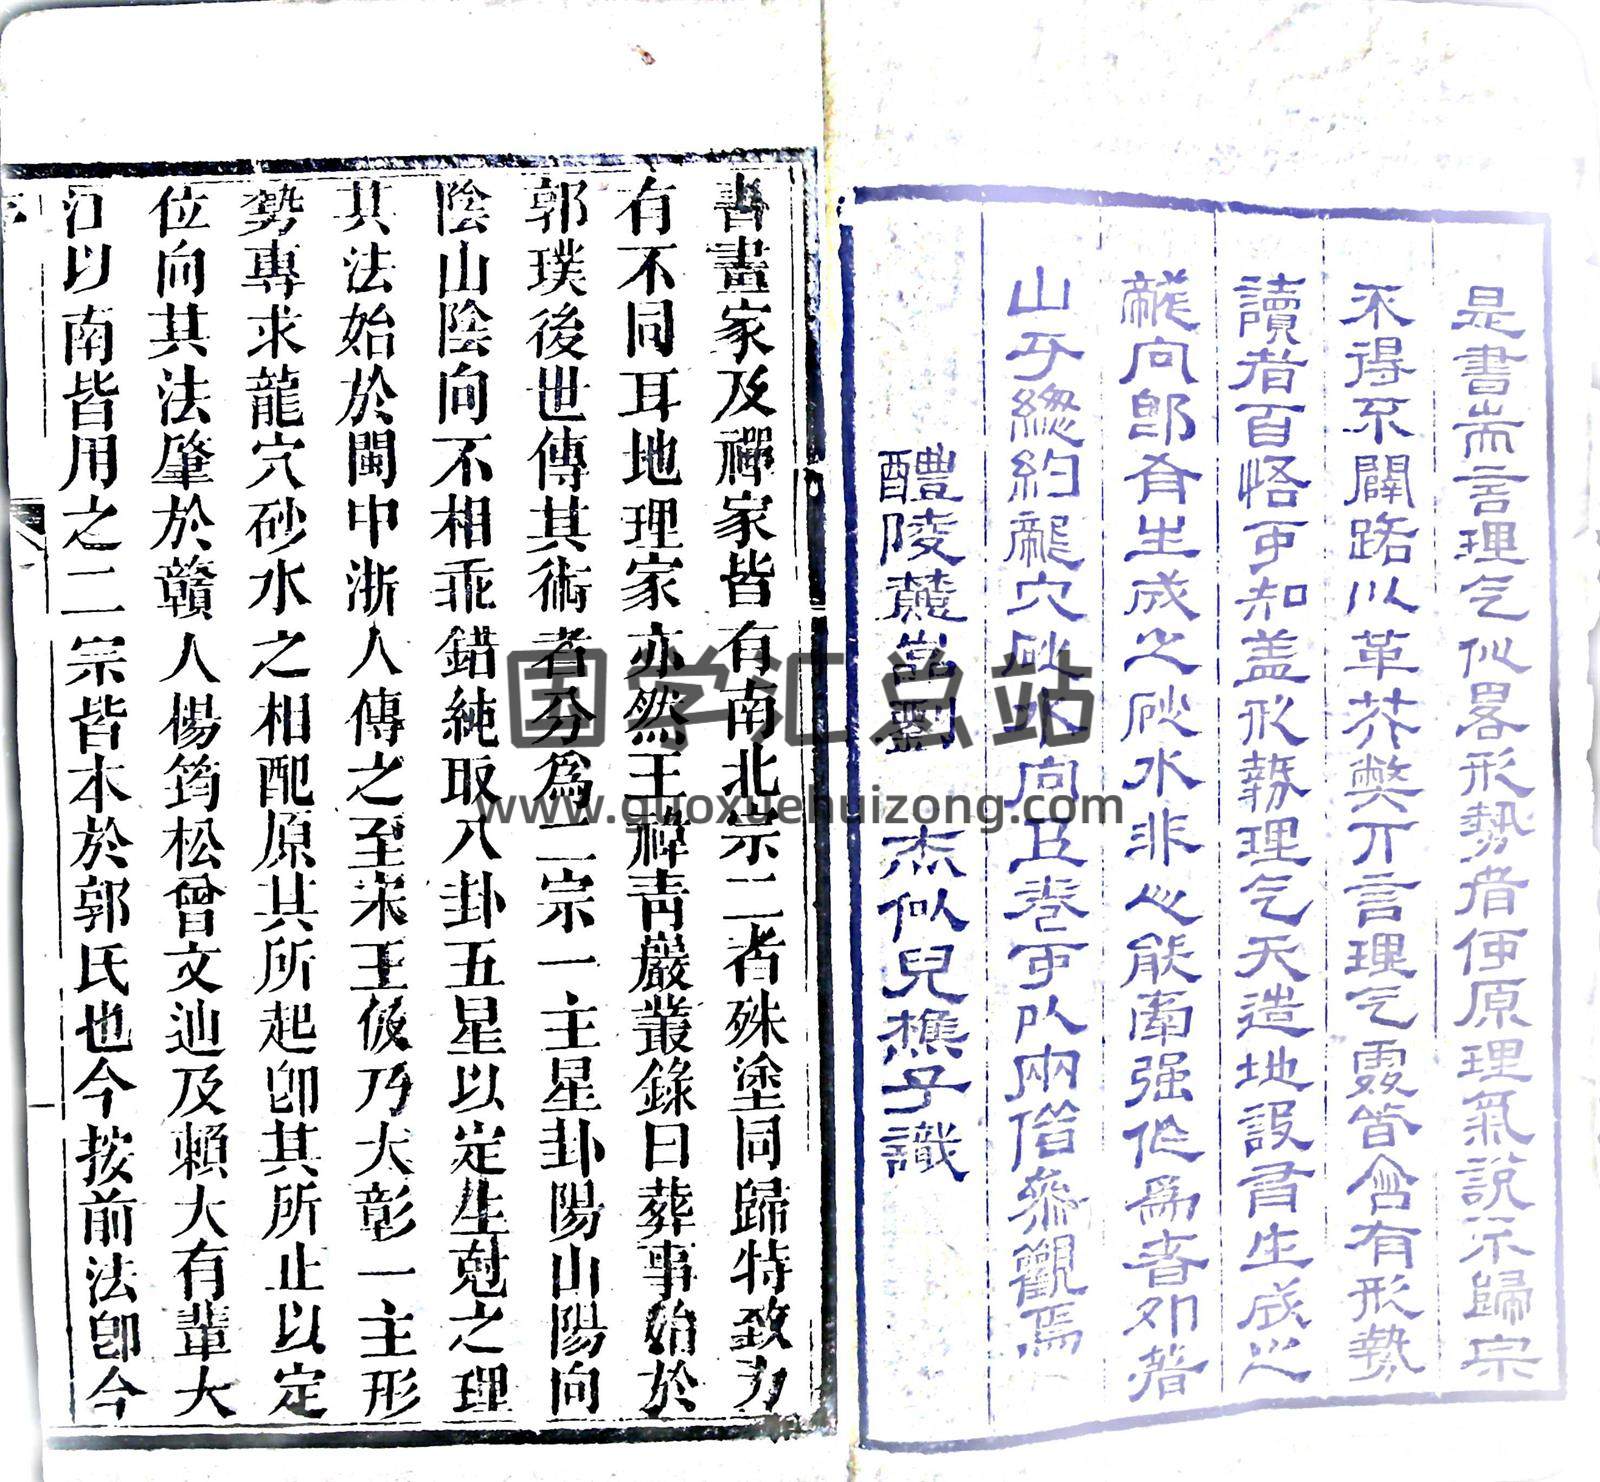 是書耑言理气似畧形勢者但原理氣說不歸宗
不得不闢路以革茅獘亓言理气處皆含有形勢
讀者百悟可知盖形勢理气天造地設有生成之
龍向即有生成之砂水非心能圖强作為者外著
山予總約龍穴砂水向五卷可以兩借叅觀焉
醴陵麓嵩劉 杰似兒樵子識
書畫家及禪家皆有南北宗二者殊塗同歸特致力
有不同耳地理家亦然王禕青巖叢錄曰葬事始於
郭璞後世傳其術者分為二宗一主星卦陽山陽向
陰山陰向不相乖錯純取八卦五星以定生尅之理
其法始於閩中浙人傳之至宋王伋乃大彰一主形
勢專求龍穴砂水之相配原其所起卽其所止以定
位向其法肇於贛人楊筠松曾文辿及賴大有輩大
江以南皆用之二宗皆本於郭氏也今按前法卽今
序
一
国学汇总站
www.guoxuehuizong.com